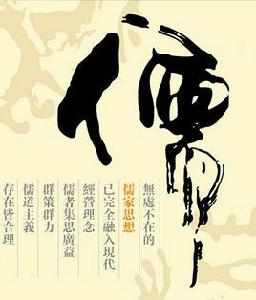 儒
無處不在的
儒家思想
已完全融入現代
經營理念
儒者集思廣益
群策群力
儒道主義
存在皆合理